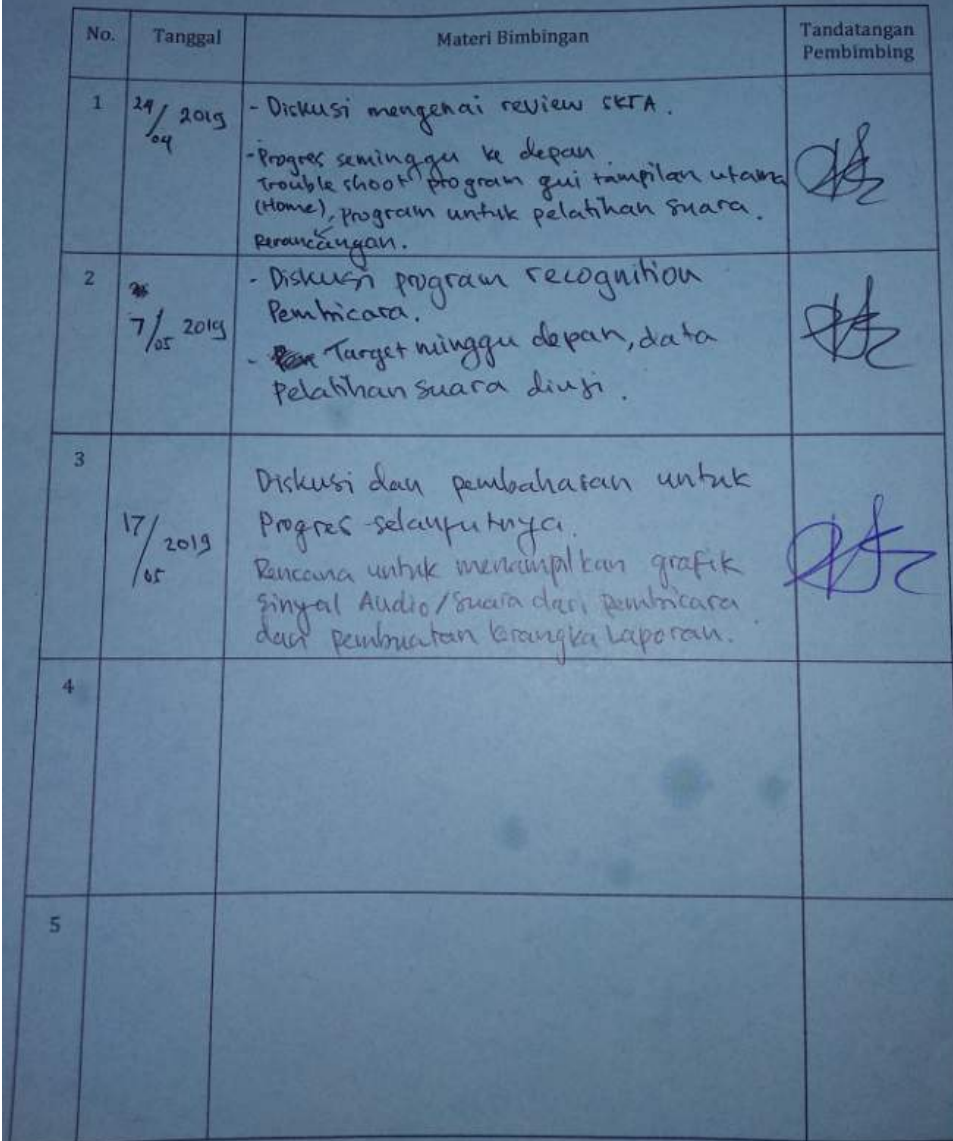 No. Tanggal Materi Bimbingan Tandatangan Pembimbing
1 24/04 2019 - Diskusi mengenai review SKTA.
- Progres seminggu ke depan
Trouble shoot program gui tampilan utama
(Home), program untuk pelatihan suara.
Perancangan.
2 7/05 2019 - Diskusi program recognition
Pembicara.
- Target minggu depan, data
Pelatihan suara diuji.
3 17/05 2019 Diskusi dan pembahasan untuk
Progres selanjutnya.
Rencana untuk menampilkan grafik
Sinyal Audio/Suara dari pembicara
dan pembuatan kerangka Laporan.
4
5